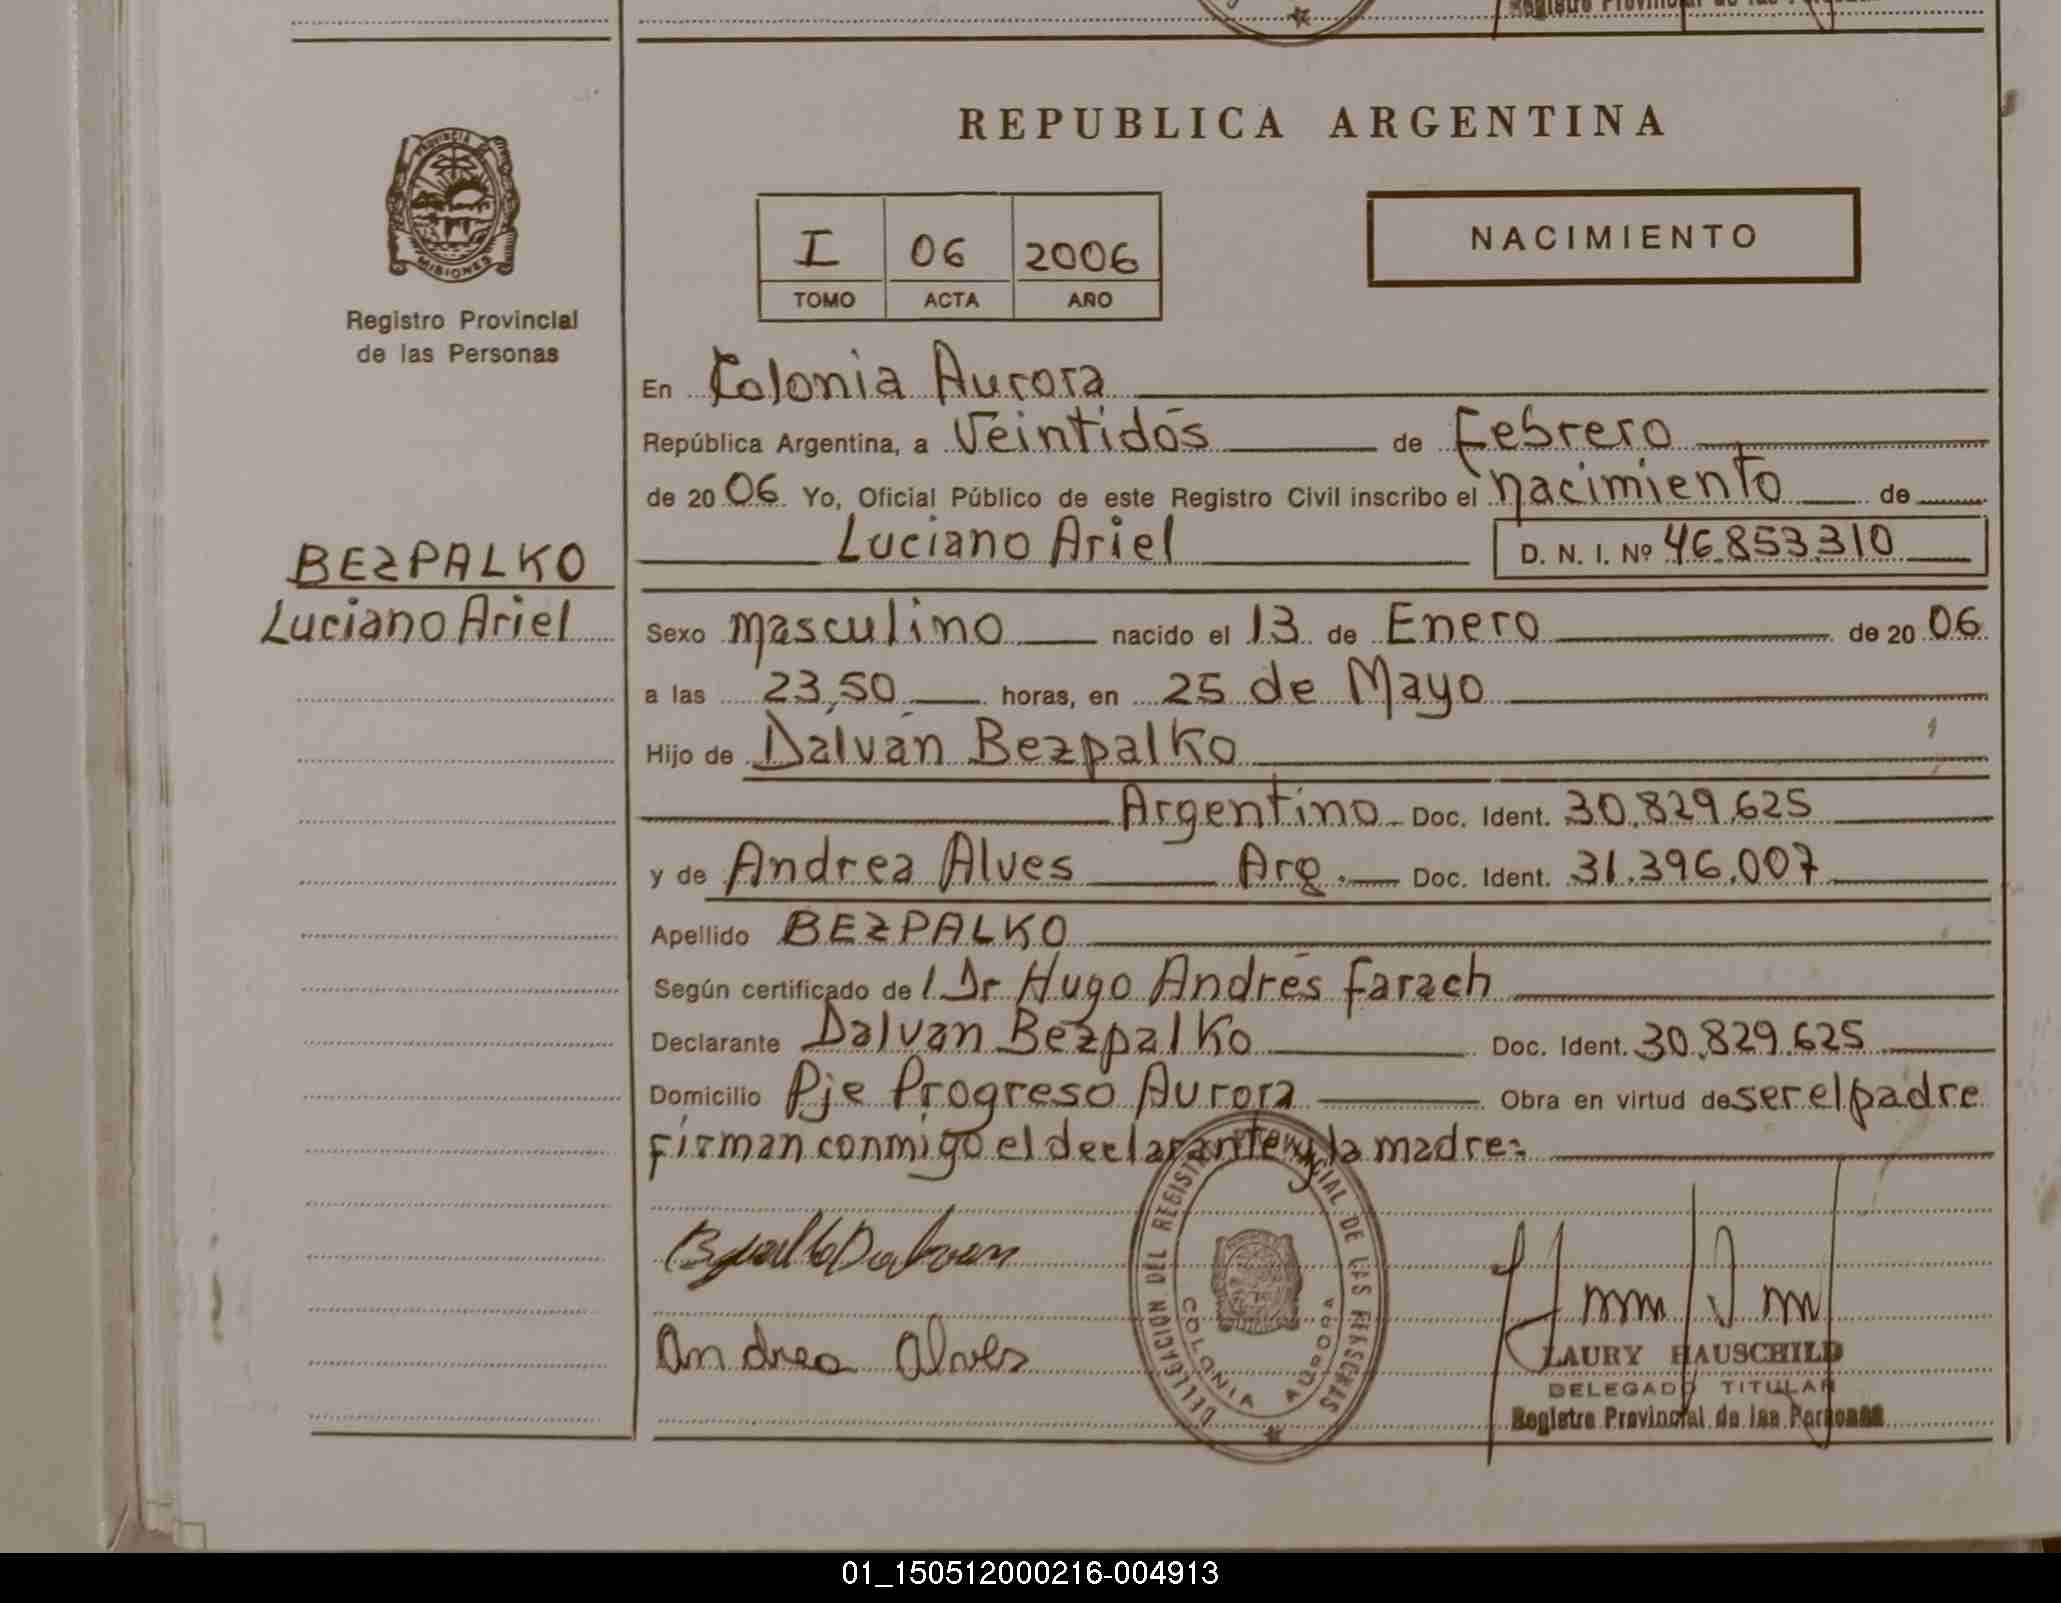 REPUBLICA ARGENTINA
PROVINCIA DE
MISIONES
Registro Provincial
de las Personas
I 06 2006
TOMO ACTA AÑO
NACIMIENTO
En Colonia Aurora
República Argentina, a Veintidós de Febrero
de 2006 Yo, Oficial Público de este Registro Civil inscribo el nacimiento de
Luciano Ariel D. N. I. Nº 46.853.310
BEZPALKO
Luciano Ariel
Sexo masculino nacido el 13 de Enero de 2006
a las 23,50 horas, en 25 de Mayo
Hijo de Dalván Bezpalko
Argentino Doc. Ident. 30.829.625
y de Andrea Alves Arg. Doc. Ident. 31.396.007
Apellido BEZPALKO
Según certificado de / Dr Hugo Andrés Farach
Declarante Dalvan Bezpalko Doc. Ident. 30.829.625
Domicilio Pje Progreso Aurora Obra en virtud de ser el padre
firman conmigo el declarante y la madre=
Andrea Alves
DELEGACION DEL REGISTRO PROVINCIAL DE LAS PERSONAS
COLONIA AURORA
LAURY HAUSCHILD
DELEGADO TITULAR
Registro Provincial de las Personas
01_150512000216-004913